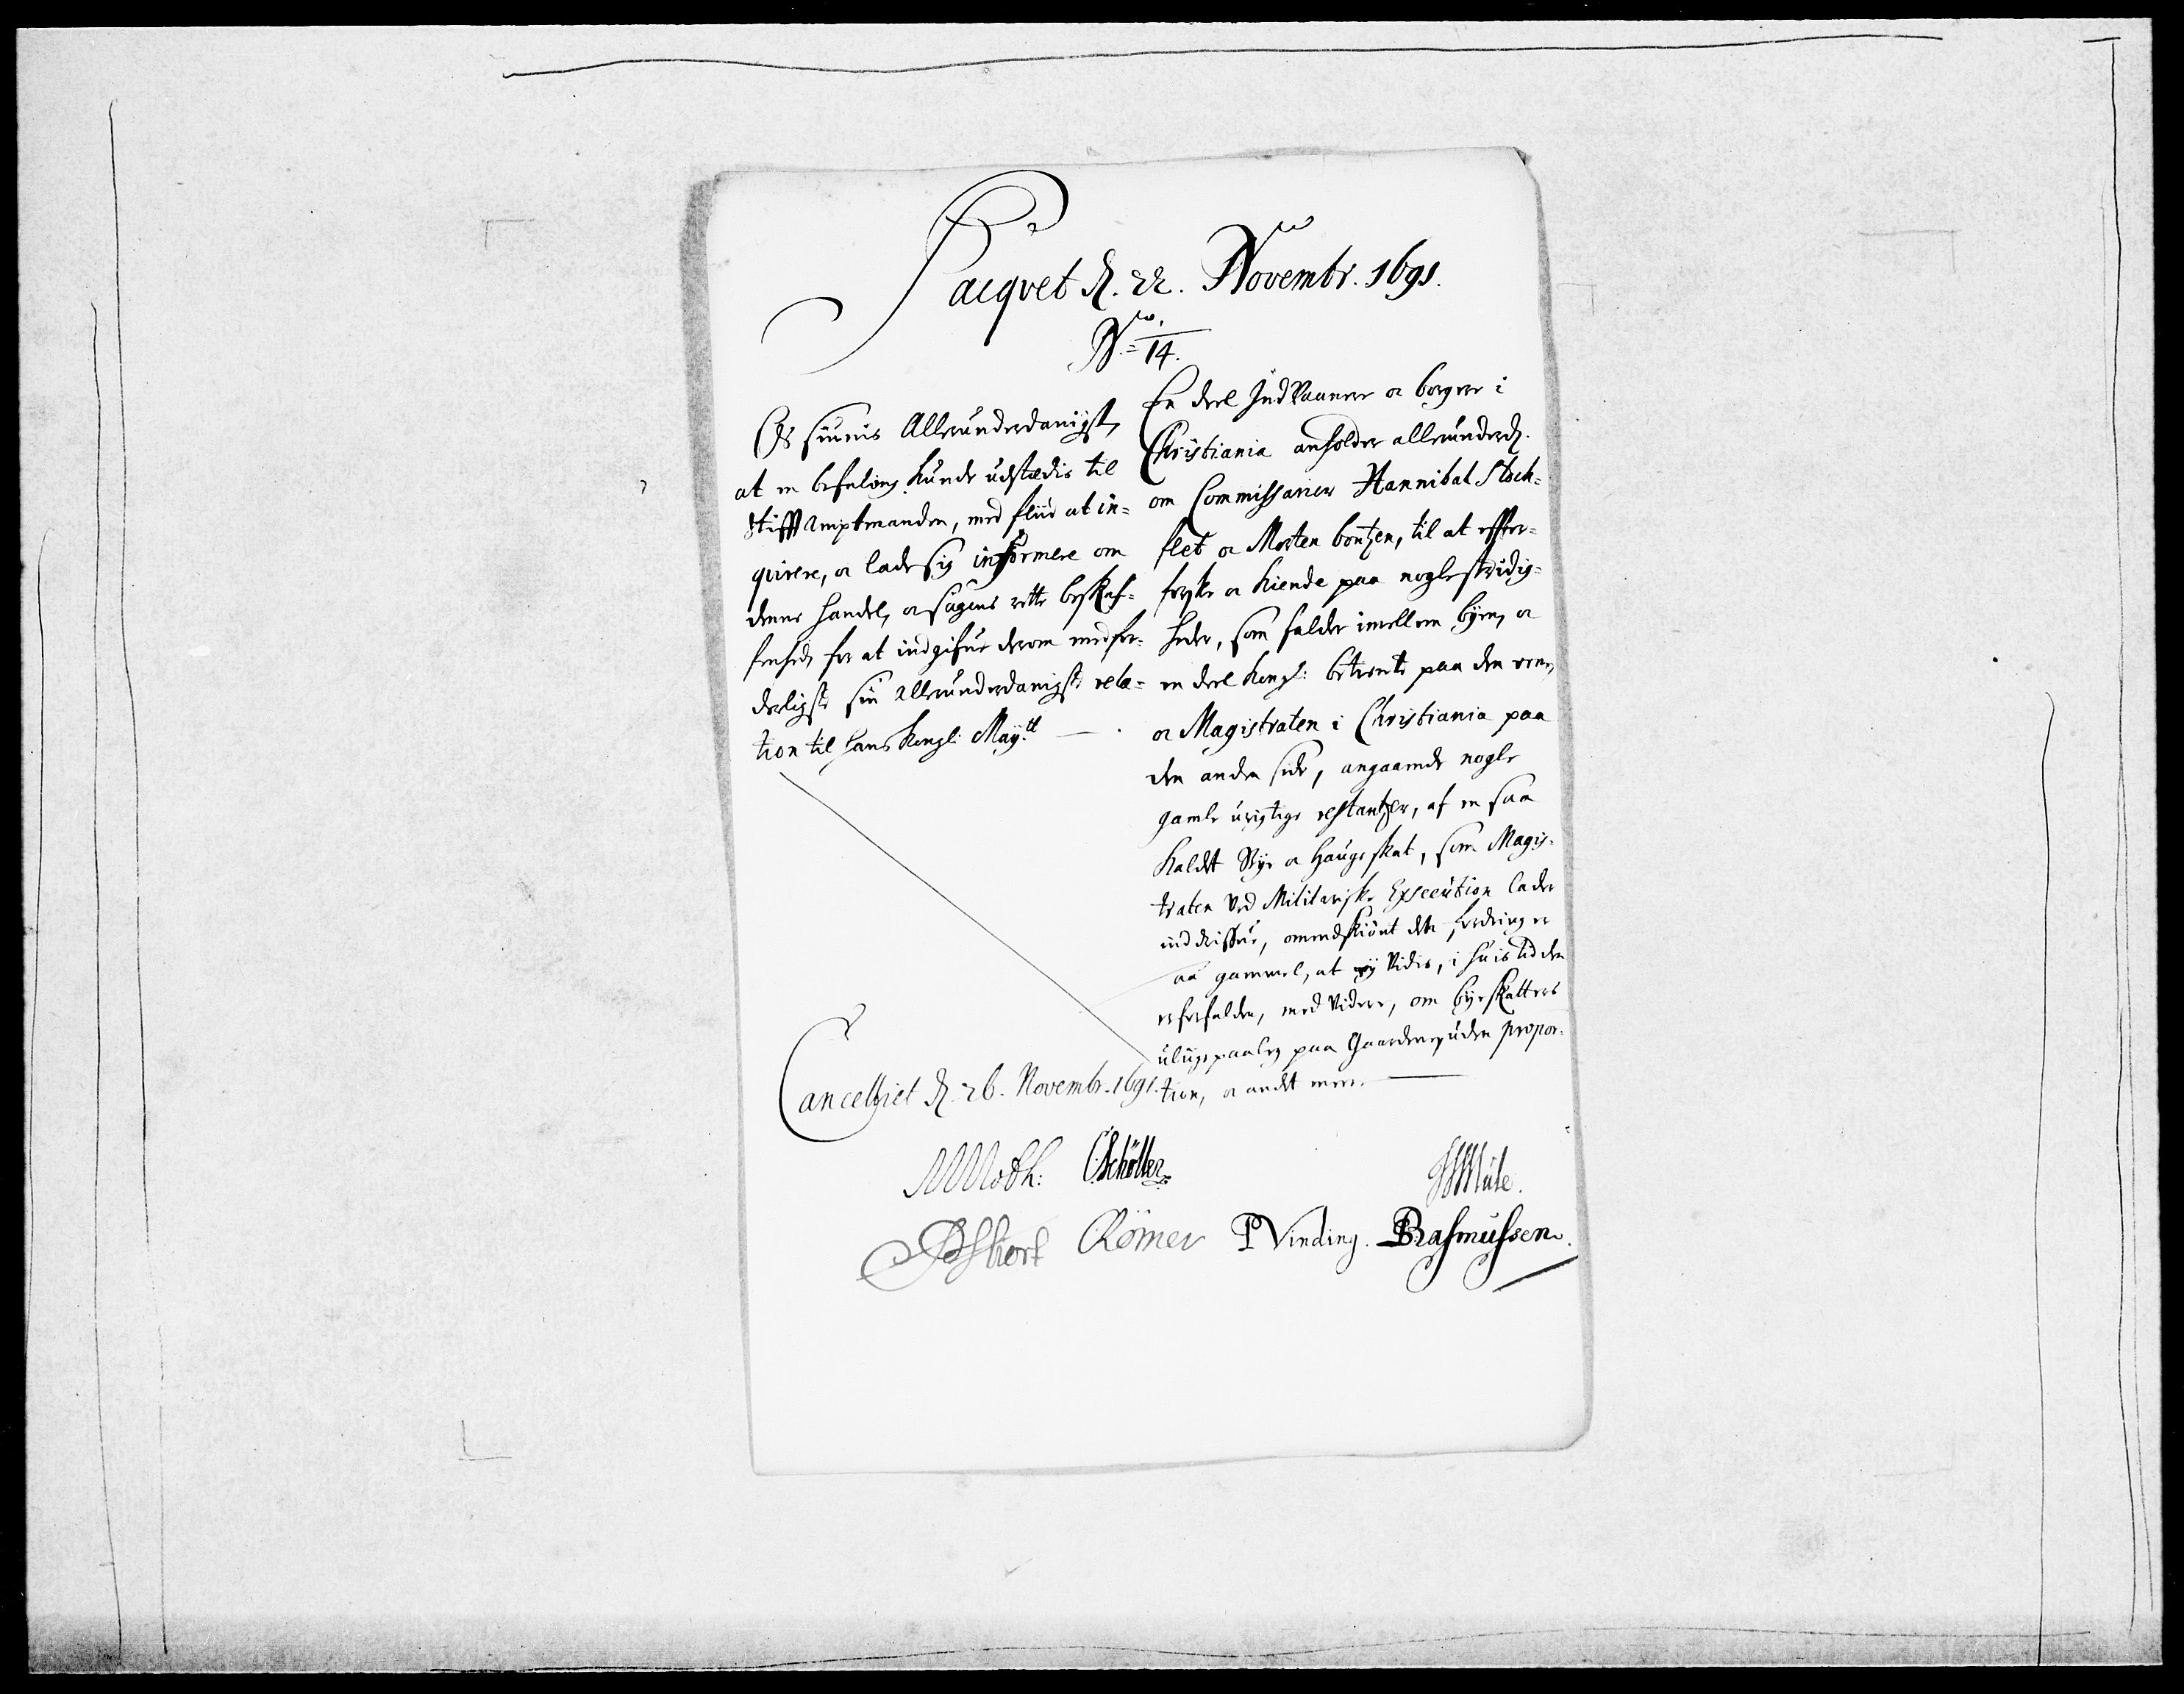 Pacqvet d. 22. Novembr. 1691.
No. 14.
Os siunis Allerunderdanigst,
at en befaling kunde udstædis til
Stifft Amptmanden, med fliid at in=
qvirere, oc lade sig informere om
denne handel, oc sagens rette beskaf=
fenhed, for at indgifve derom med for=
derligst sin allerunderdanigste rela=
tion til hans Kongl: Mayt:
En deel Indvaanere oc borgere i
Christiania anholder allerunderd.
om Commissarier Hannibal Stock=
flet oc Morten bontzen, til at effter=
forske oc kiende paa nogle stridig=
heder, som falder imellem byen, oc
en deel Kongl: betiente paa den eene,
oc Magistraten i Christiania paa
den anden side, angaaende nogle
gamle urigtige restantzer, af en saa
kaldet Bye oc Haugeskat, som Magis=
traten ved Militariske Execution lader
inddrifve, omendskiønt den fordring er
saa gammel, at ey vides, i huis tid den
er forfalden, med videre, om byeskattens
uliige paaleg paa Gaardene, uden propor=
tion, oc andet mere.
Cancelliet d. 26. Novembr. 1691.
MMoth: CSchøller HMule.
Römer PVinding. BRasmussen.